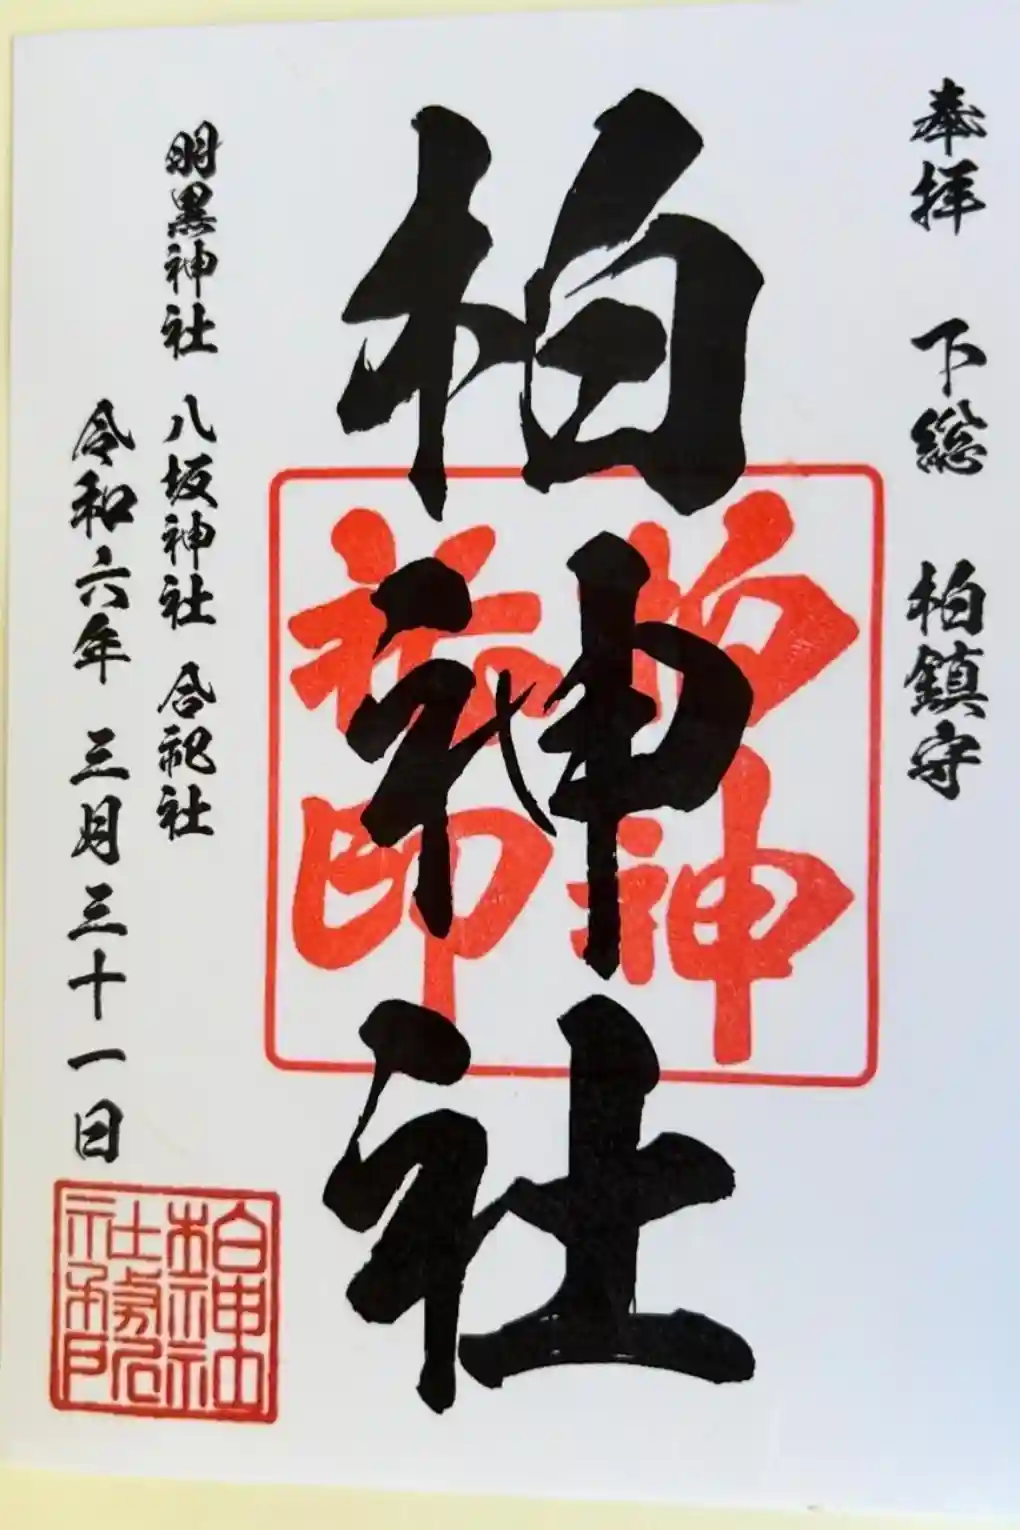 奉拝　下総　柏鎮守
柏神社
羽黒神社　八坂神社　合祀社
令和六年　三月三十一日
柏神
社印
柏神社
社務所